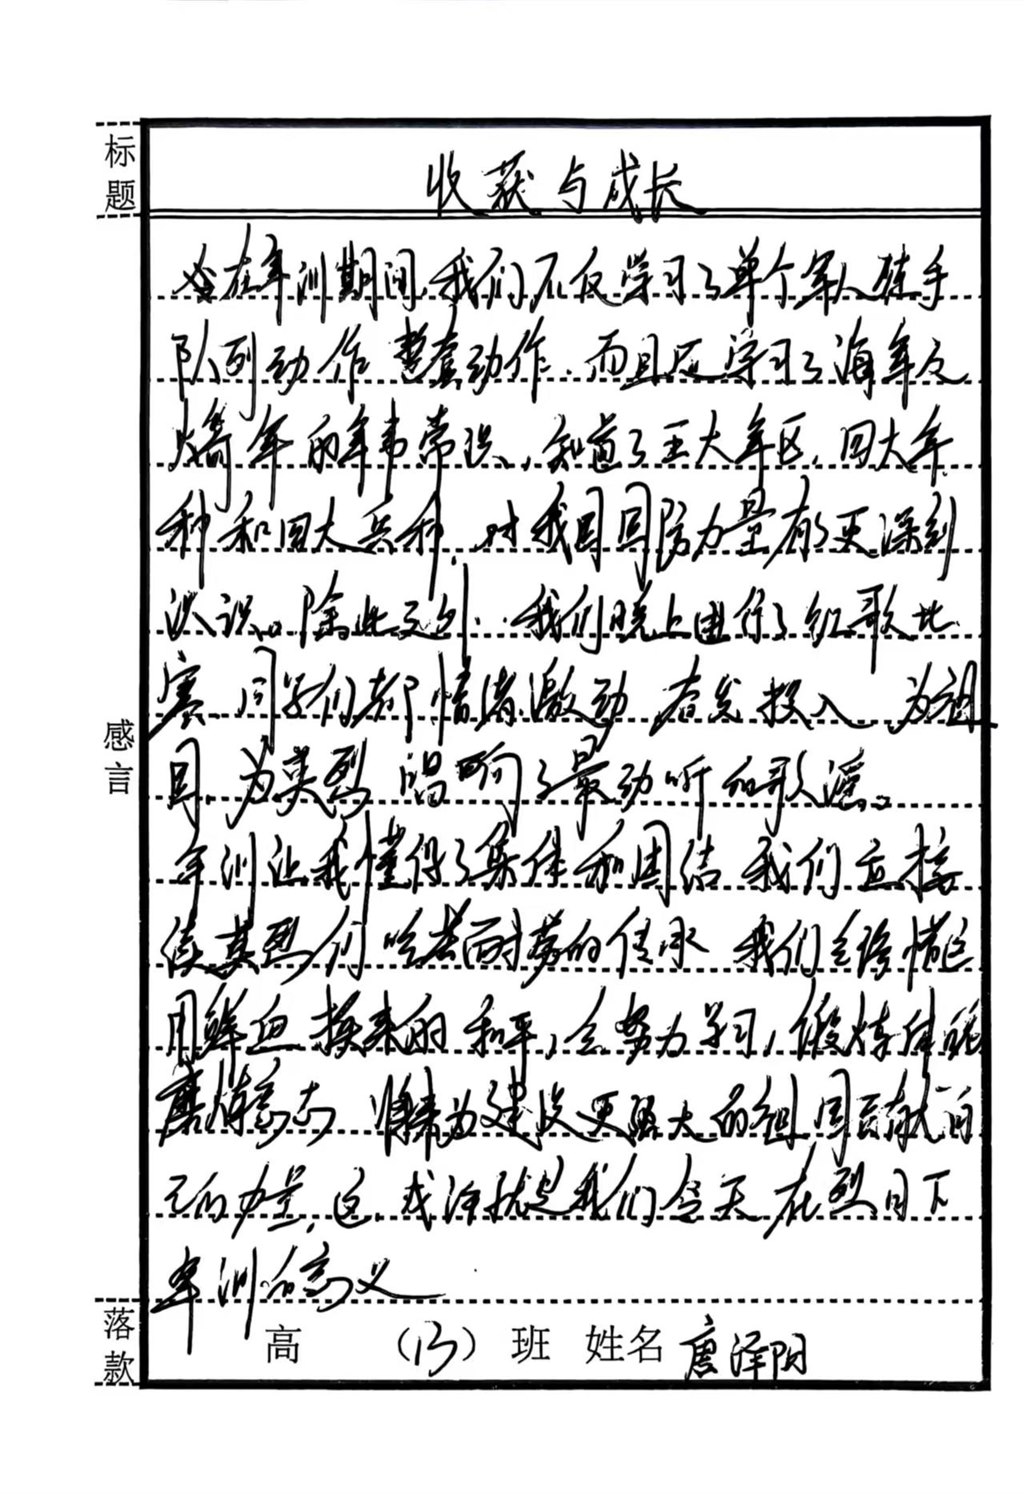 标题
收获与成长
在军训期间,我们不仅学习了单个军人徒手
队列动作 整套动作.而且还学习了海军及
火箭军的军事常识,知道了五大军区,四大军
种和四大兵种,对我国国防力量有了更深刻
认识。除此之外,我们晚上进行了红歌比
赛,同学们都情绪激动 投入 为祖
国,为英烈唱响了最动听的歌谣。
军训让我懂得了集体和团结 我们应接
续英烈们吃苦耐劳的传承 我们会珍惜
用鲜血换来的和平,会努力学习,锻炼体能
磨炼意志 将来为建设更强大的祖国贡献自
己的力量,这,或许就是我们今天在烈日下
军训的意义
感言
落款
高 (13) 班 姓名 唐泽阳